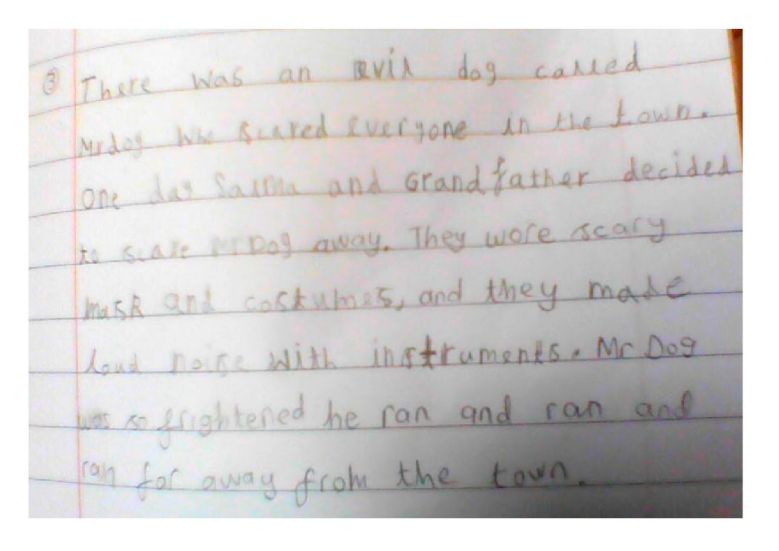 ③ There was an evil dog called
Mrdog who scared everyone in the town.
One day Salma and Grandfather decided
to scare Mr Dog away. They wore scary
mask and costumes, and they made
loud noise with instruments. Mr Dog
was so frightened he ran and ran and
ran far away from the town.